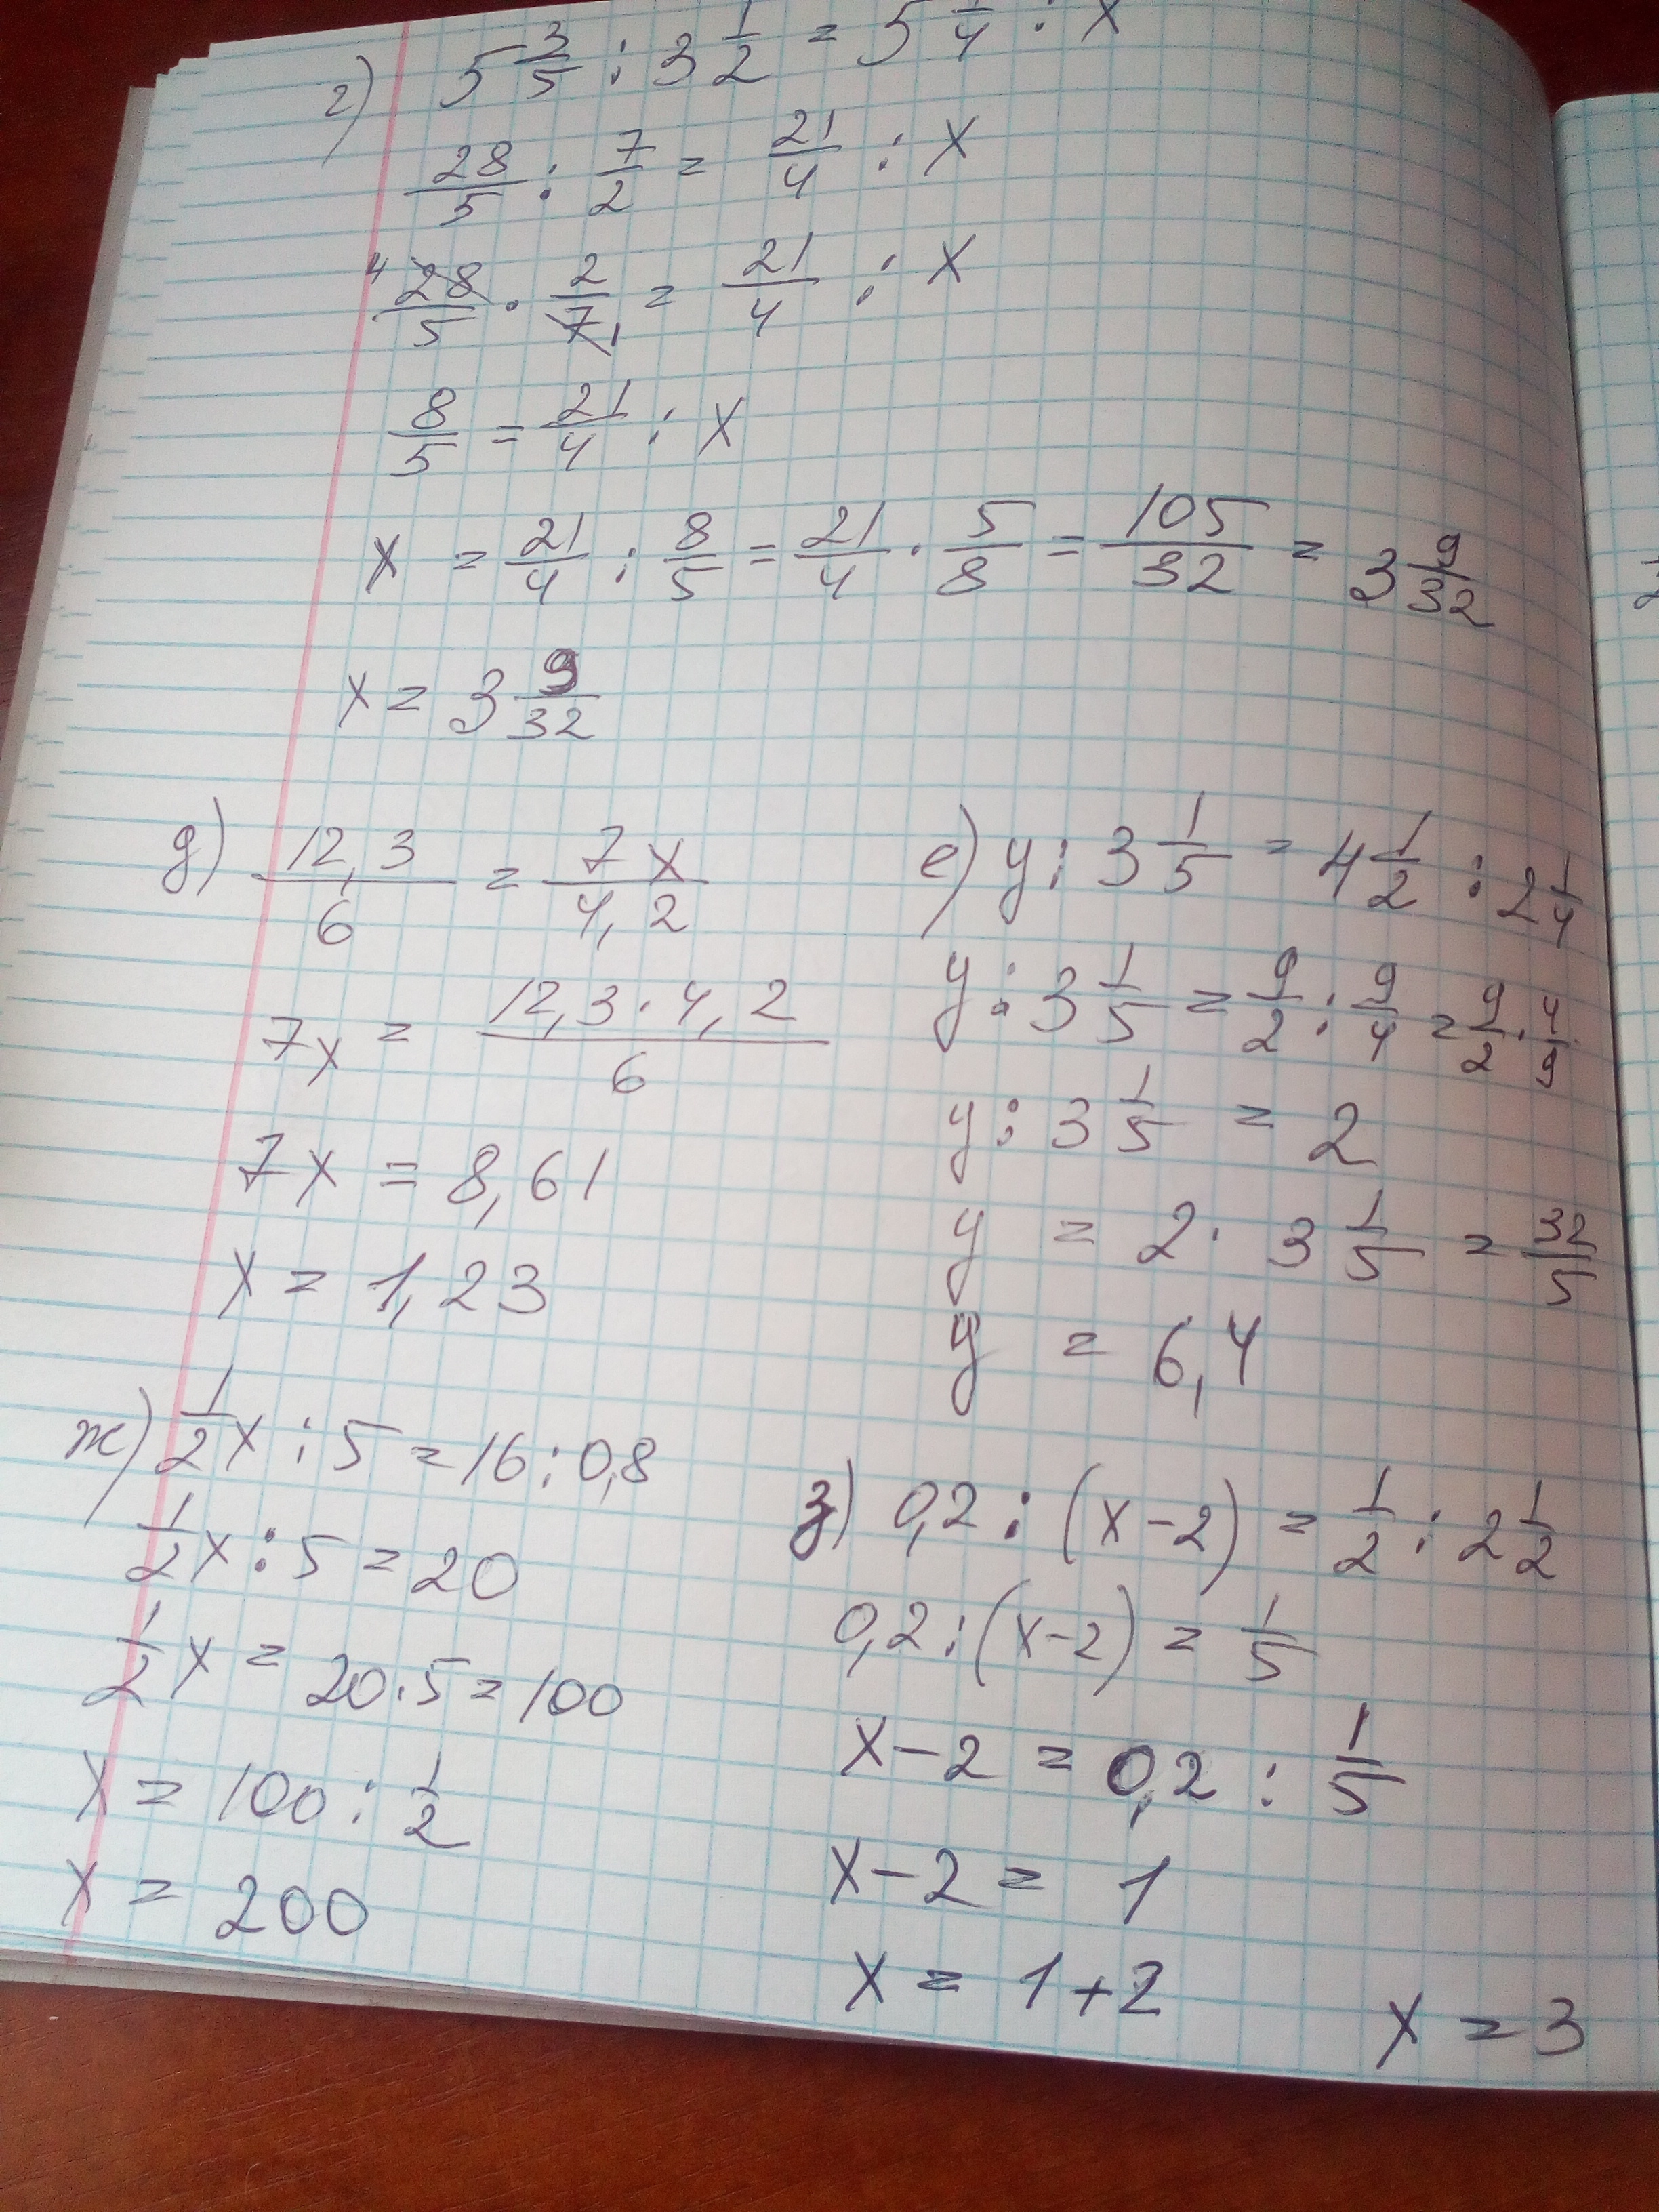 г) 5 3/5 : 3 1/2 = 5 1/4 : x
28/5 : 7/2 = 21/4 : x
4 28/5 · 2/7 1 = 21/4 : x
8/5 = 21/4 : x
x = 21/4 : 8/5 = 21/4 · 5/8 = 105/32 = 3 9/32
x = 3 9/32
д) 12,3/6 = 7x/4,2
7x = 12,3·4,2/6
7x = 8,61
x = 1,23
е) y : 3 1/5 = 4 1/2 : 2 1/4
y : 3 1/5 = 9/2 : 9/4 = 9/2 · 4/9
y : 3 1/5 = 2
y = 2 · 3 1/5 = 32/5
y = 6,4
ж) 1/2 x : 5 = 16 : 0,8
1/2 x : 5 = 20
1/2 x = 20·5 = 100
x = 100 : 1/2
x = 200
з) 0,2 : (x-2) = 1/2 : 2 1/2
0,2 : (x-2) = 1/5
x-2 = 0,2 : 1/5
x-2 = 1
x = 1+2
x = 3